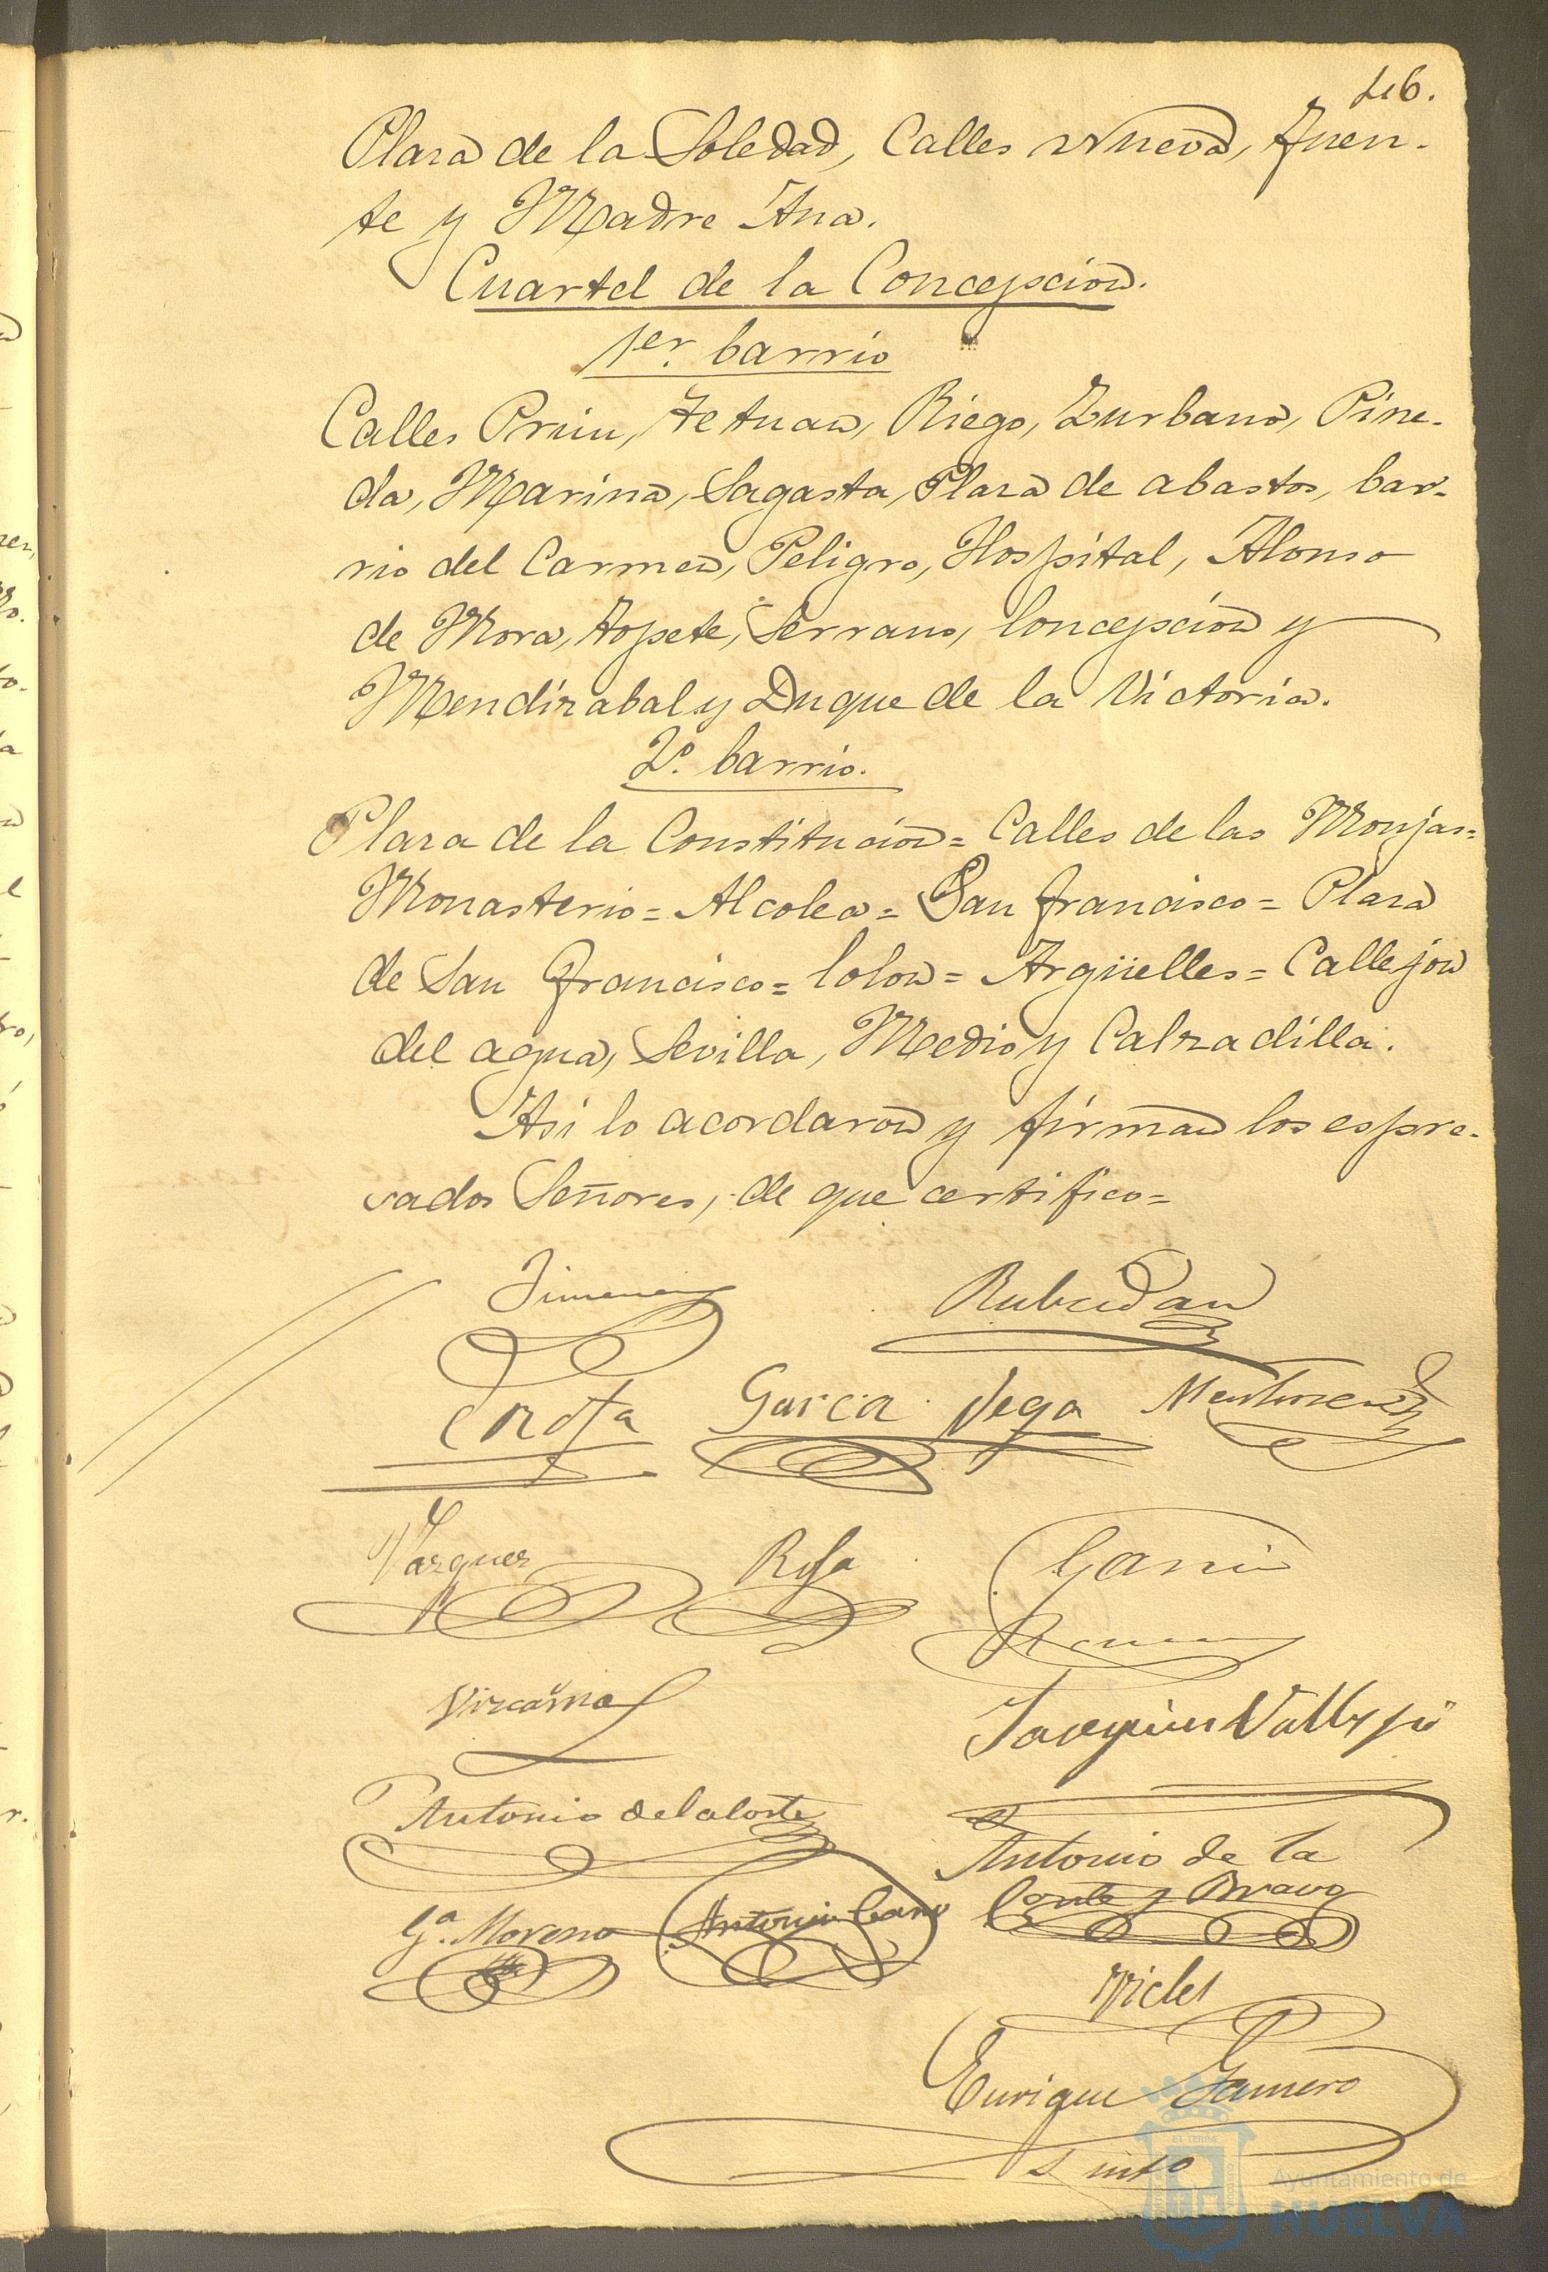 46.
Plaza de la Soledad, Calles Nueva, Fuen-
te y Madre Ana.
Cuartel de la Concepcion.
1er. barrio
Calles Prim, Tetuan, Riego, Zurbano, Pine-
da, Marina, Sagasta, Plaza de abastos, bar-
rio del Carmen, Peligro, Hospital, Alonso
de Mora, Topete, Serrano, Concepcion y
Mendizabal y Duque de la Victoria.
2º. barrio.
Plaza de la Constitucion = Calles de las Monjas =
Monasterio = Alcolea = San Francisco = Plaza
de San Francisco = Colon = Argüelles = Callejon
del agua, Sevilla, Medio y Calzadilla.
Asi lo acordaron y firman los espre-
sados Señores, de que certifico =
Jimenez Rubudan
Garcia Vega
Vazquez Rofa
Garcia
Vizcaino
Joaquin Vallejo
Antonio de la Corte
Antonio de la
Corte y Bravo
Gª. Moreno Antonio Cano
Enrique Gamero
Ayuntamiento de
HUELVA